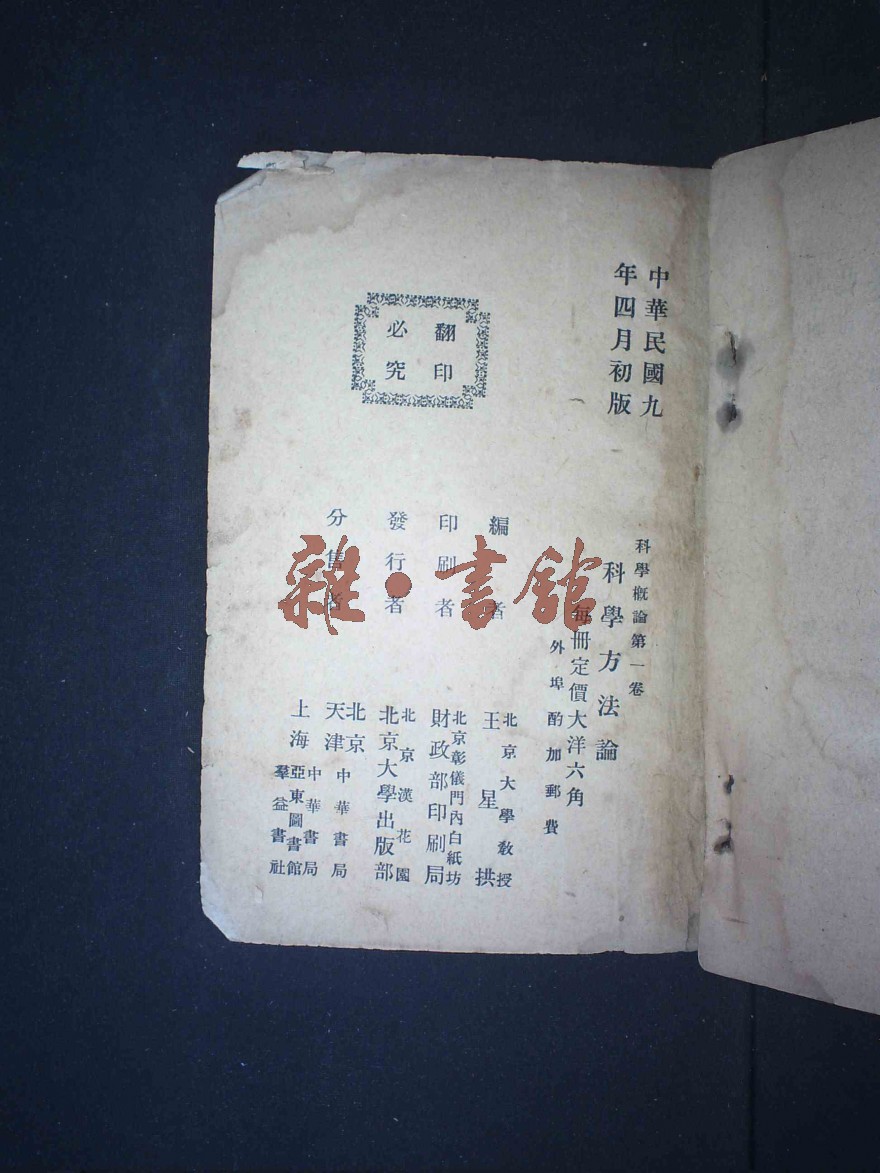 中華民國九
年四月初版
翻印
必究
科學概論第一卷
科學方法論
每冊定價大洋六角
外埠酌加郵費
編者
北京大學教授
王星拱
印刷者
北京彰儀門內白紙坊
財政部印刷局
發行者
北京漢花園
北京大學出版部
分售者
北京
天津
中華書局
上海
中華書局
亞東圖書館
羣益書社
雜·書館